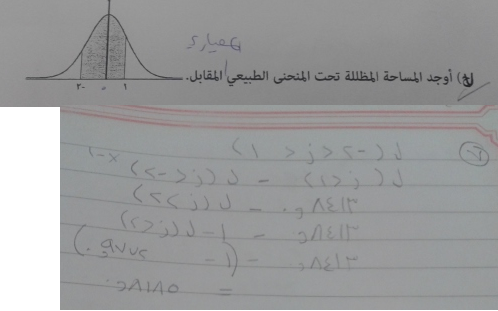 معياري
ج) أوجد المساحة المظللة تحت المنحنى الطبيعي المقابل.
-٢ ٠ ١
ل(-٢ < ز < ١)
ل(ز < ١) - ل(ز < -٢)
٠,٨٤١٣ - ل(ز > ٢)
٠,٨٤١٣ - ١ - ل(ز < ٢)
٠,٨٤١٣ - (١ - ٠,٩٧٧٢)
= ٠,٨١٨٥